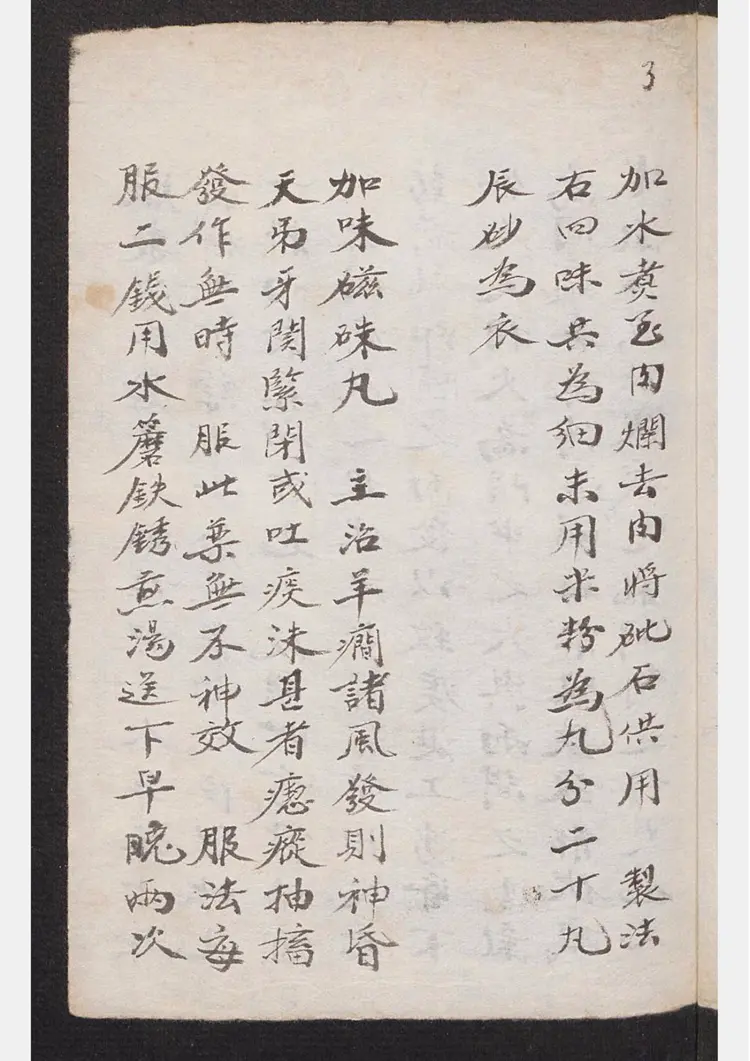 3
加水煑至肉爛去肉將砒石供用 製法
右四味共為細末用米粉為丸分二十丸
辰砂為衣
加味磁硃丸 主治羊癇諸風發則神昏
天弔牙関緊閉或吐痰沫甚者瘛瘲抽搐
發作無時 服此藥無不神效 服法每
服二錢用水簺鉄銹煎湯送下早晚兩次